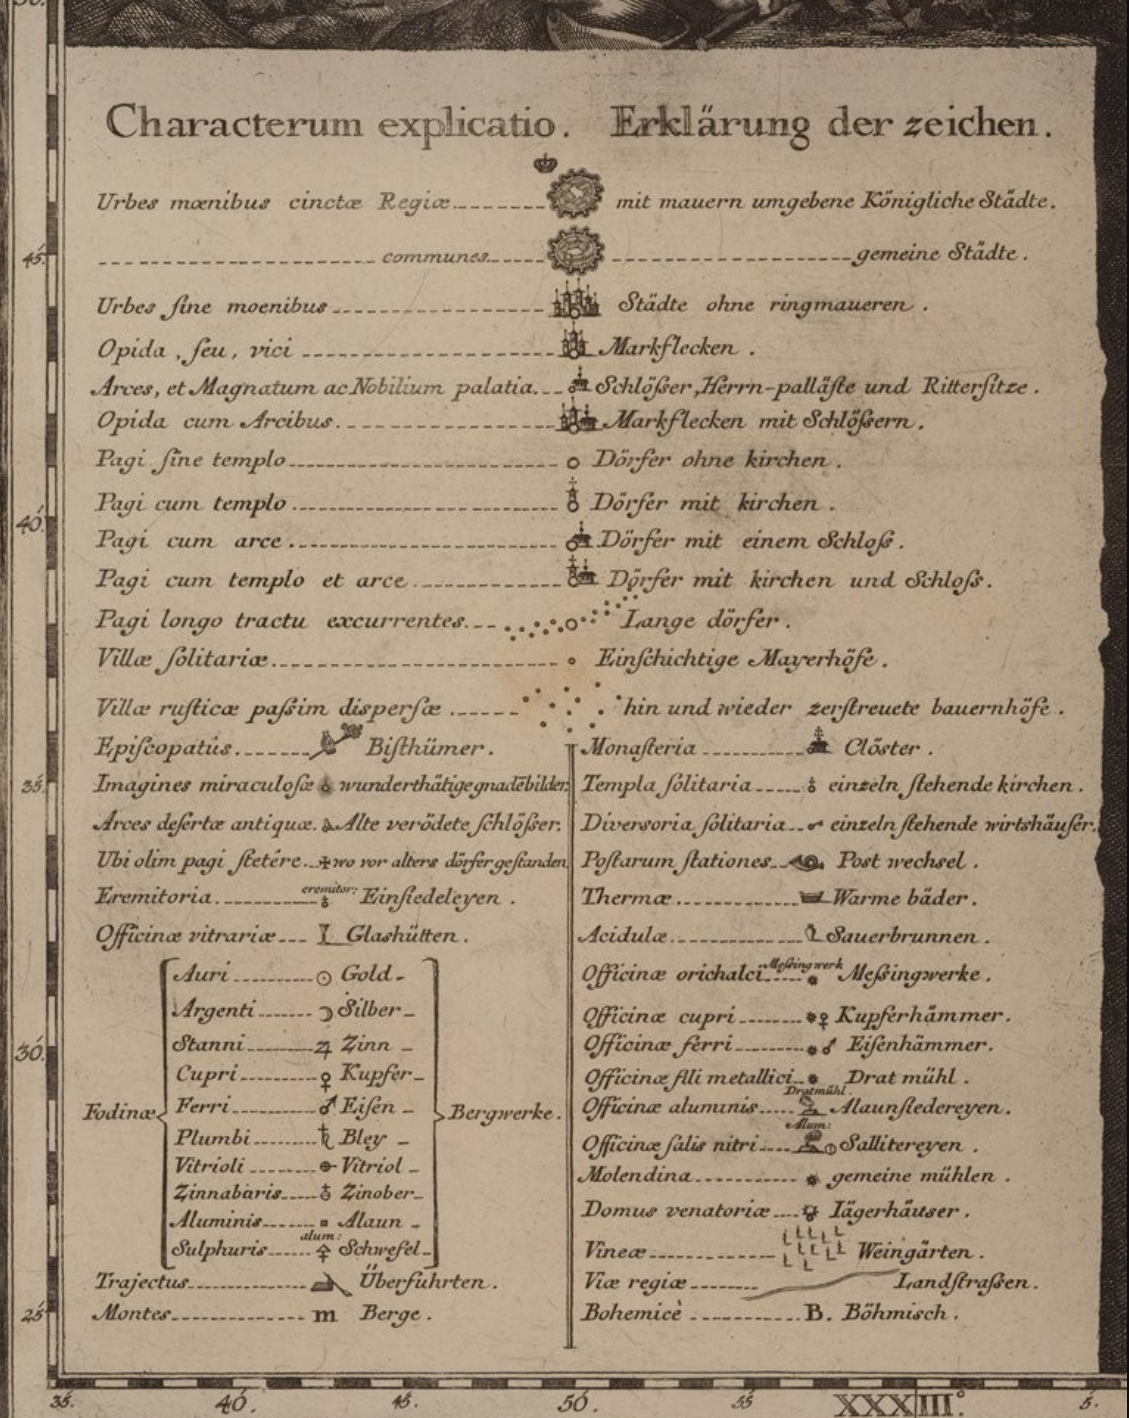 Characterum explicatio. Erklärung der zeichen.
Urbes mœnibus cinctæ Regiæ mit mauern umgebene Königliche Städte.
communes gemeine Städte.
Urbes ſine moenibus Städte ohne ringmaueren.
Opida, ſeu, vici Markflecken.
Arces, et Magnatum ac Nobilium palatia Schlöſser, Herrn-palläſte und Ritterſitze.
Opida cum Arcibus Markflecken mit Schlöſsern.
Pagi ſine templo Dörfer ohne kirchen.
Pagi cum templo Dörfer mit kirchen.
Pagi cum arce Dörfer mit einem Schloſs.
Pagi cum templo et arce Dörfer mit kirchen und Schloſs.
Pagi longo tractu excurrentes Lange dörfer.
Villæ ſolitariæ Einſchichtige Mayerhöfe.
Villæ ruſticæ paſsim disperſæ hin und wieder zerſtreuete bauernhöfe.
Epiſcopatûs Biſthümer.
Imagines miraculoſæ wunderthätige gnadēbilder.
Arces deſertæ antiquæ. Alte verödete ſchlöſser.
Ubi olim pagi ſtetére wo vor alters dörfer geſtanden
Eremitoria eremitor: Einſiedeleyen.
Officinæ vitrariæ Glashütten.
Fodinæ
Auri Gold-
Argenti Silber-
Stanni Zinn-
Cupri Kupfer-
Ferri Eiſen-
Plumbi Bley-
Vitrioli Vitriol-
Zinnabaris Zinober-
Aluminis Alaun-
alum:
Sulphuris Schwefel-
Bergwerke.
Trajectus Überfuhrten.
Montes m Berge.
Monaſteria Clöster.
Templa ſolitaria einzeln ſtehende kirchen.
Diversoria ſolitaria einzeln ſtehende wirtshäuſer.
Poſtarum ſtationes Post wechsel.
Thermæ Warme bäder.
Acidulæ Sauerbrunnen.
Officinæ orichalci Meſsingwerk Meſsingwerke.
Officinæ cupri Kupferhämmer.
Officinæ ferri Eiſenhämmer.
Officinæ fili metallici Drat mühl.
Dratmühl.
Officinæ aluminis Alaunſiedereyen.
Alum:
Officinæ ſalis nitri Sallitereyen.
Molendina gemeine mühlen.
Domus venatoriæ Iägerhäuser.
Vineæ Weingärten.
Viæ regiæ Landſtraſsen.
Bohemicè B. Böhmisch.
45.
40.
35.
30.
25
35. 40. 45. 50. 55 XXXIII° 5.